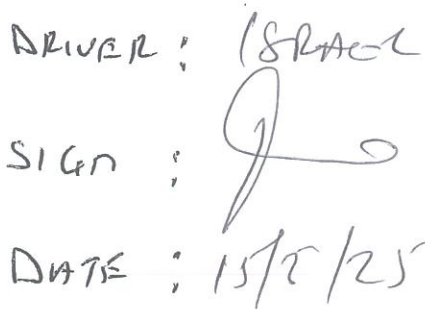 DRIVER : ISRAEL
SIGN :
DATE : 15/5/25